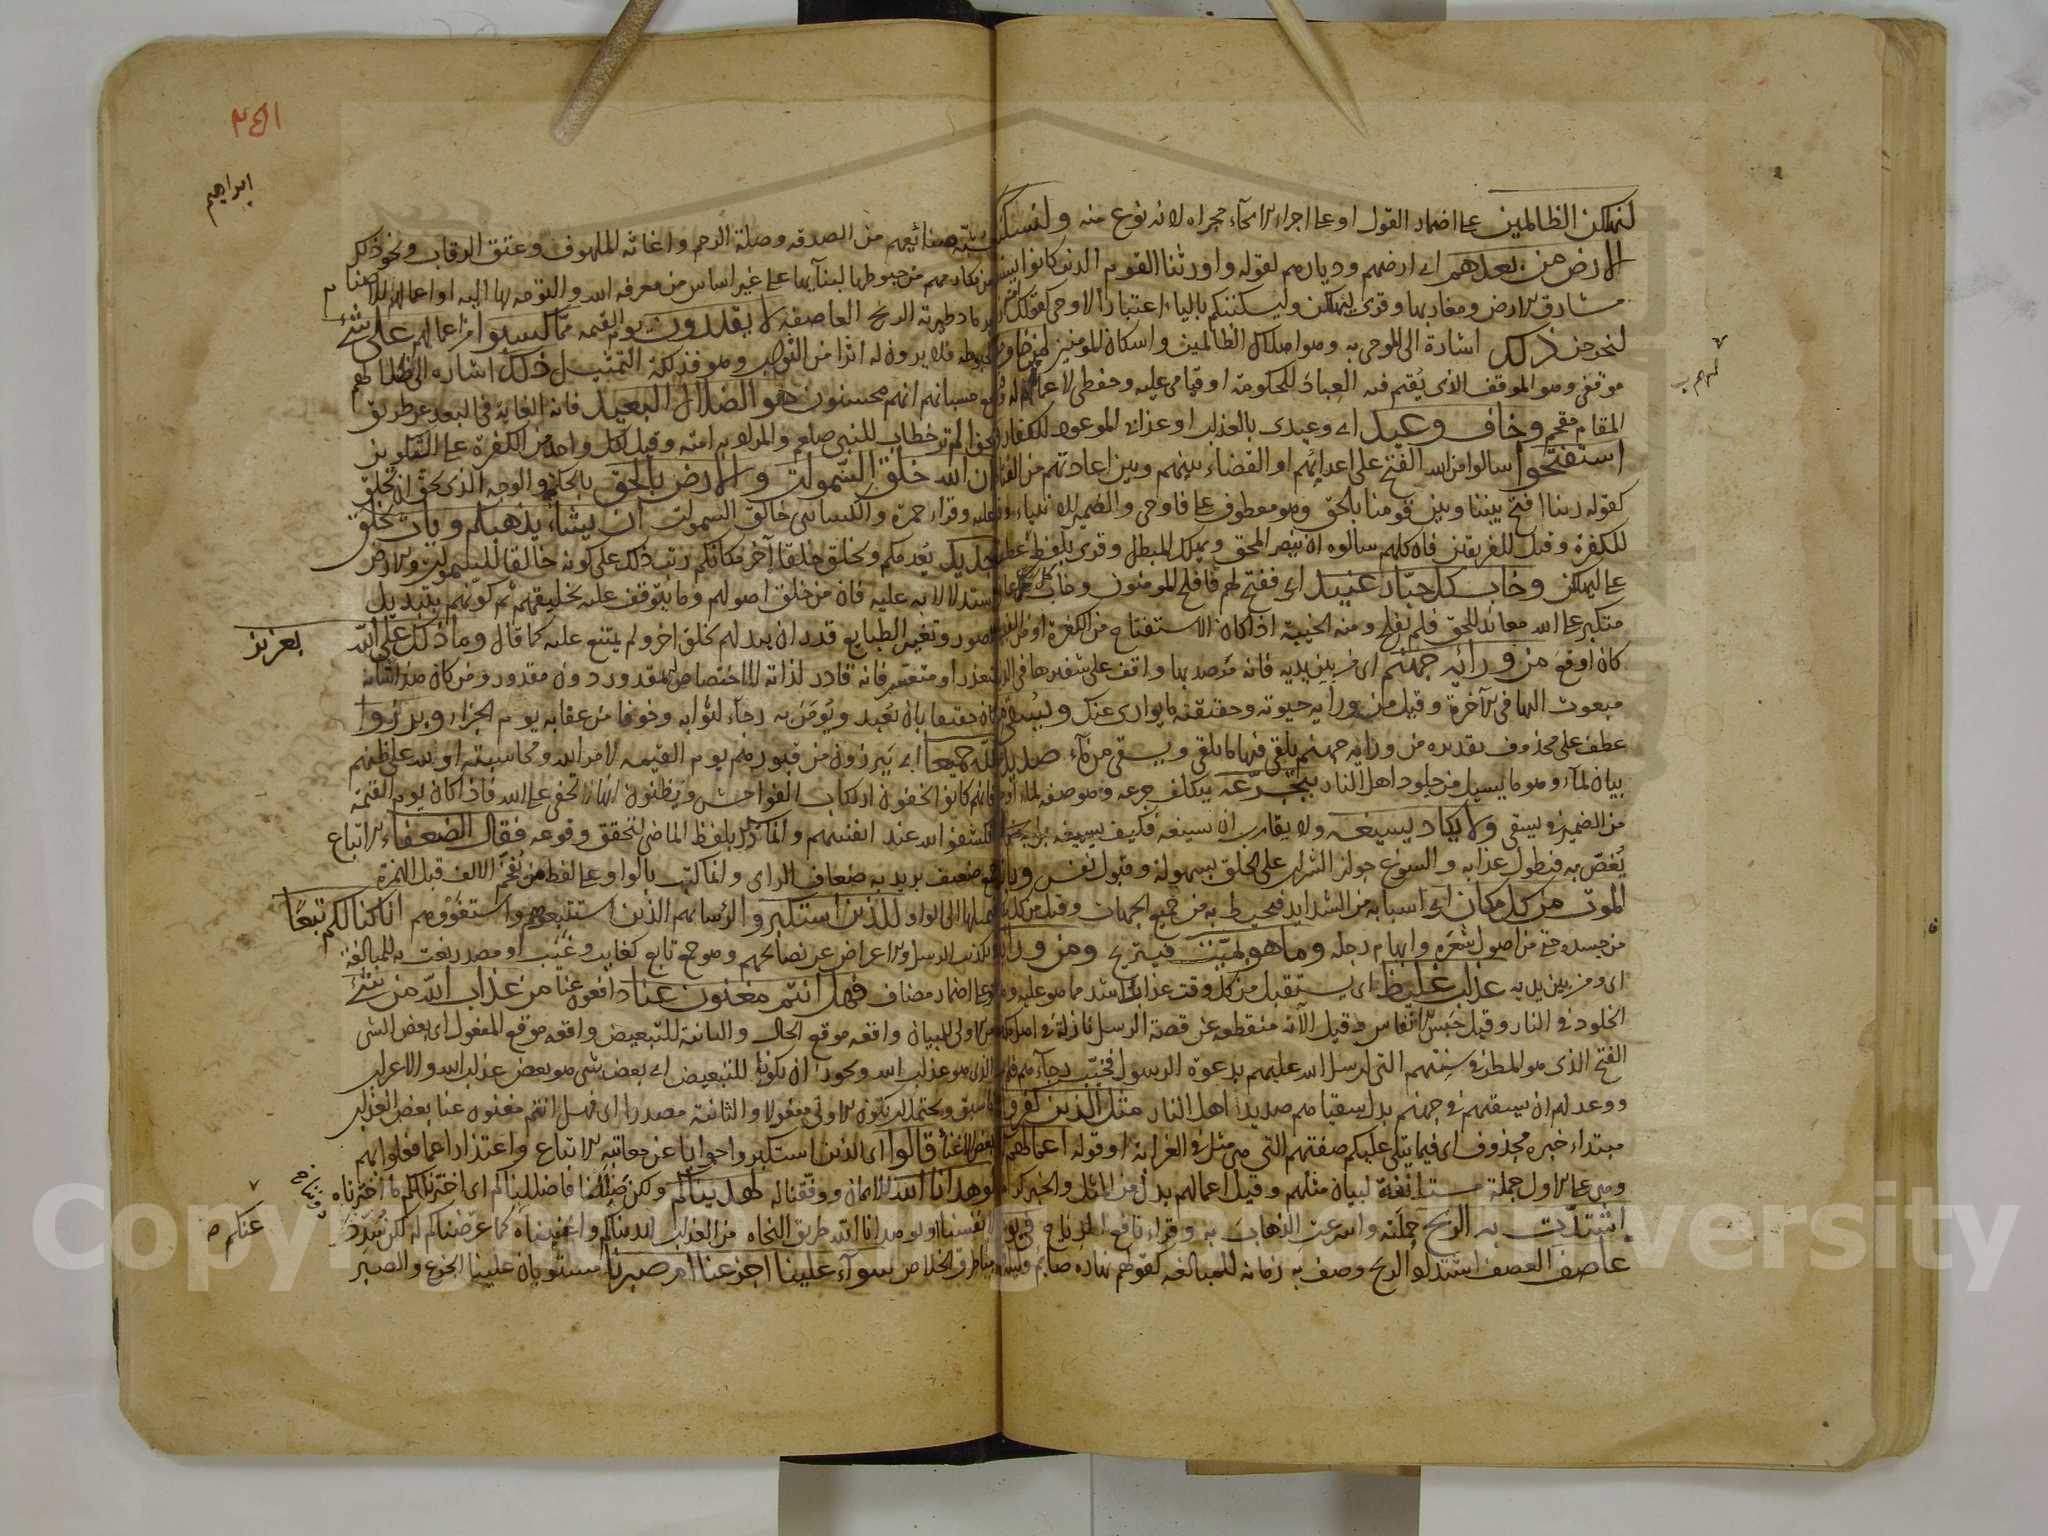 لنهلكن الظالمين على اضمار القول او على اجراء الايحاء مجراه لانه نوع منه ولنسكننكم
الارض من بعدهم اى ارضهم وديارهم لقوله واورثنا القوم الذين كانوا يستضعفون
مشارق الارض ومغاربها وقرئ ليهلكن وليسكننكم بالياء اعتبارا لاوحى كقولك
ذلك اشارة الى الموحى به وهو اهلاك الظالمين واسكان المؤمنين لمن خاف
موقفى وهو الموقف الذى يقيم فيه العباد للحكومة او قيامى عليه وحفظى لاعماله
المقام مقحم وخاف وعيد اى وعيدى بالعذاب او عذابى الموعود للكفار
استفتحوا سالوا من الله الفتح على اعدائهم او القضاء بينهم وبين اعاديهم من
كقوله ربنا افتح بيننا وبين قومنا بالحق وهو معطوف على فاوحى والضمير للانبياء
للكفرة وقيل للفريقين فان كلهم سالوه ان ينصر المحق ويهلك المبطل وقرئ بلفظ
على ليهلكن وخاب كل جبار عنيد اى ففتح لهم فافلح المؤمنون وخاب كل
متكبر على الله معاند للحق فلم يفلح ومنه الخيبة اذا كان الاستفتاح من الكفرة او من
كان اوقع من ورائه جهنم اى من بين يديه فانه مرصد بها واقف على شفيرها فى
مبعوث اليها فى الاخرة وقيل من وراء حيوته وحقيقته ما توارى عنك ويسقى
عطف على محذوف تقديره من ورائه جهنم يلقى فيها ما يلقى ويسقى من ماء صديد
بيان لماء وهو ما يسيل من جلود اهل النار يتجرعه يتكلف جرعه وهو صفة لماء او
من الضمير فى يسقى ولا يكاد يسيغه ولا يقارب ان يسيغه فكيف يسيغه بل
يغص به فيطول عذابه والسوغ جواز الشراب على الحلق بسهولة وقبول نفس وياتيه
الموت من كل مكان اى اسبابه من الشدايد فيحيط به من جميع الجهات وقيل من كل مكان
من جسده حتى من اصول شعره وابهام رجله وما هو بميت فيستريح ومن ورائه
اى ومن بين يديه عذاب غليظ اى يستقبل من كل وقت عذابا اشد مما هو عليه
الخلود فى النار وقيل حبس الانفاس قيل الآية منقطعة عن قصة الرسل نازلة فى اهل مكة
الفتح الذى هو المطر فى سنيهم التى ارسل الله عليهم بدعوة الرسول فخيب رجاءهم
ووعد لهم ان يسقيهم فى جهنم بدل سقياهم صديد اهل النار مثل الذين كفروا
مبتداء خبره محذوف اى فيما يتلى عليكم صفتهم التى هى مثل فى الغرابة او قوله اعمالهم
وهى على الاول جملة مستانفة لبيان مثلهم وقيل اعمالهم بدل من المثل والخبر كرماد
اشتدت به الريح حملته واسرعت الذهاب به وقراء نافع الرياح فى يوم
عاصف العصف اشتداد الريح وصف به زمانه للمبالغة كقولهم نهاره صائم
ابراهيم
صنائعهم من الصدقة وصلة الرحم واغاثة الملهوف وعتق الرقاب ونحو ذلك
من مكارمهم فى حبوطها لبنائها على غير اساس من معرفة الله والتوجه بها اليه او اعمالهم للاصنام
برماد طيرته الريح العاصفة لا يقدرون يوم القيمة مما كسبوا من اعمالهم على شئ
لحبوطه فلا يرون له اثرا من الثواب وهو فذلكة التمثيل ذلك اشارة الى ضلالهم
مع حسبانهم انهم محسنون هو الضلال البعيد فانه الغاية فى البعد عن طريق
الحق الم تر خطاب للنبى صلعم والمراد به امته وقيل لكل واحد من الكفرة على التلوين
ان الله خلق السموات والارض بالحق بالحكمة والوجه الذى يحق ان يخلق
عليه وقراء حمزة والكسائى خالق السموات ان يشاء يذهبكم ويات بخلق
جديد يعدمكم ويخلق خلقا آخر مكانكم رتب ذلك على كونه خالقا للسموات والارض
استدلالا به عليه فان من خلق اصولهم وما يتوقف عليه تخليقهم ثم كونهم بتبديل
الصور وتغيير الطبايع قدر ان يبدلهم بخلق اخر ولم يمتنع عليه كما قال وما ذلك على الله
بعزيز
بمتعذر او متعسر فانه قادر لذاته لا اختصاص له بمقدور دون مقدور ومن كان هذا شانه
كان حقيقا بان يعبد ويؤمن به رجاء لثوابه وخوفا من عقابه يوم الجزاء وبرزوا
لله جميعا اى يبرزون من قبورهم يوم القيمة لامر الله ومحاسبته او لله على ظنهم
فانهم كانوا يخفون ارتكاب الفواحش ويظنون انها تخفى على الله فاذا كان يوم القيمة
انكشفوا لله عند انفسهم وانما ذكر بلفظ الماضى لتحقق وقوعه فقال الضعفاء الاتباع
جمع ضعيف يريد به ضعاف الراى وانما كتبت بالواو على لفظ من يفخم الالف قبل الهمزة
فيميلها الى الواو للذين استكبروا لرؤسائهم الذين استتبعوهم واستغووهم انا كنا لكم تبعا
فى تكذيب الرسل والاعراض عن نصائحهم وهو جمع تابع كغائب وغيب او مصدر نعت به للمبالغة
او على اضمار مضاف فهل انتم مغنون عنا دافعون عنا من عذاب الله من شئ
من الاولى للبيان واقعة موقع الحال والثانية للتبعيض واقعة موقع المفعول اى بعض الشئ
الذى هو عذاب الله ويجوز ان يكونا للتبعيض اى بعض شئ هو بعض عذاب الله والاعراب
ما سبق ويحتمل ان يكون الاولى مفعولا والثانية مصدرا اى فهل انتم مغنون عنا بعض العذاب
بعض الاغناء قالوا اى الذين استكبروا جوابا عن معاتبة الاتباع واعتذارا عما فعلوا بهم
لو هدانا الله للايمان ووفقنا له لهديناكم ولكن ضللنا فاضللناكم اى اخترنا لكم ما اخترناه
لانفسنا او لو هدانا الله طريق النجاة من العذاب لهديناكم واغنيناه كما عرضناكم له لكن سد
دوننا طريق الخلاص سواء علينا اجزعنا ام صبرنا مستويان علينا الجزع والصبر
عنكم صح
Copyright © King Saud University